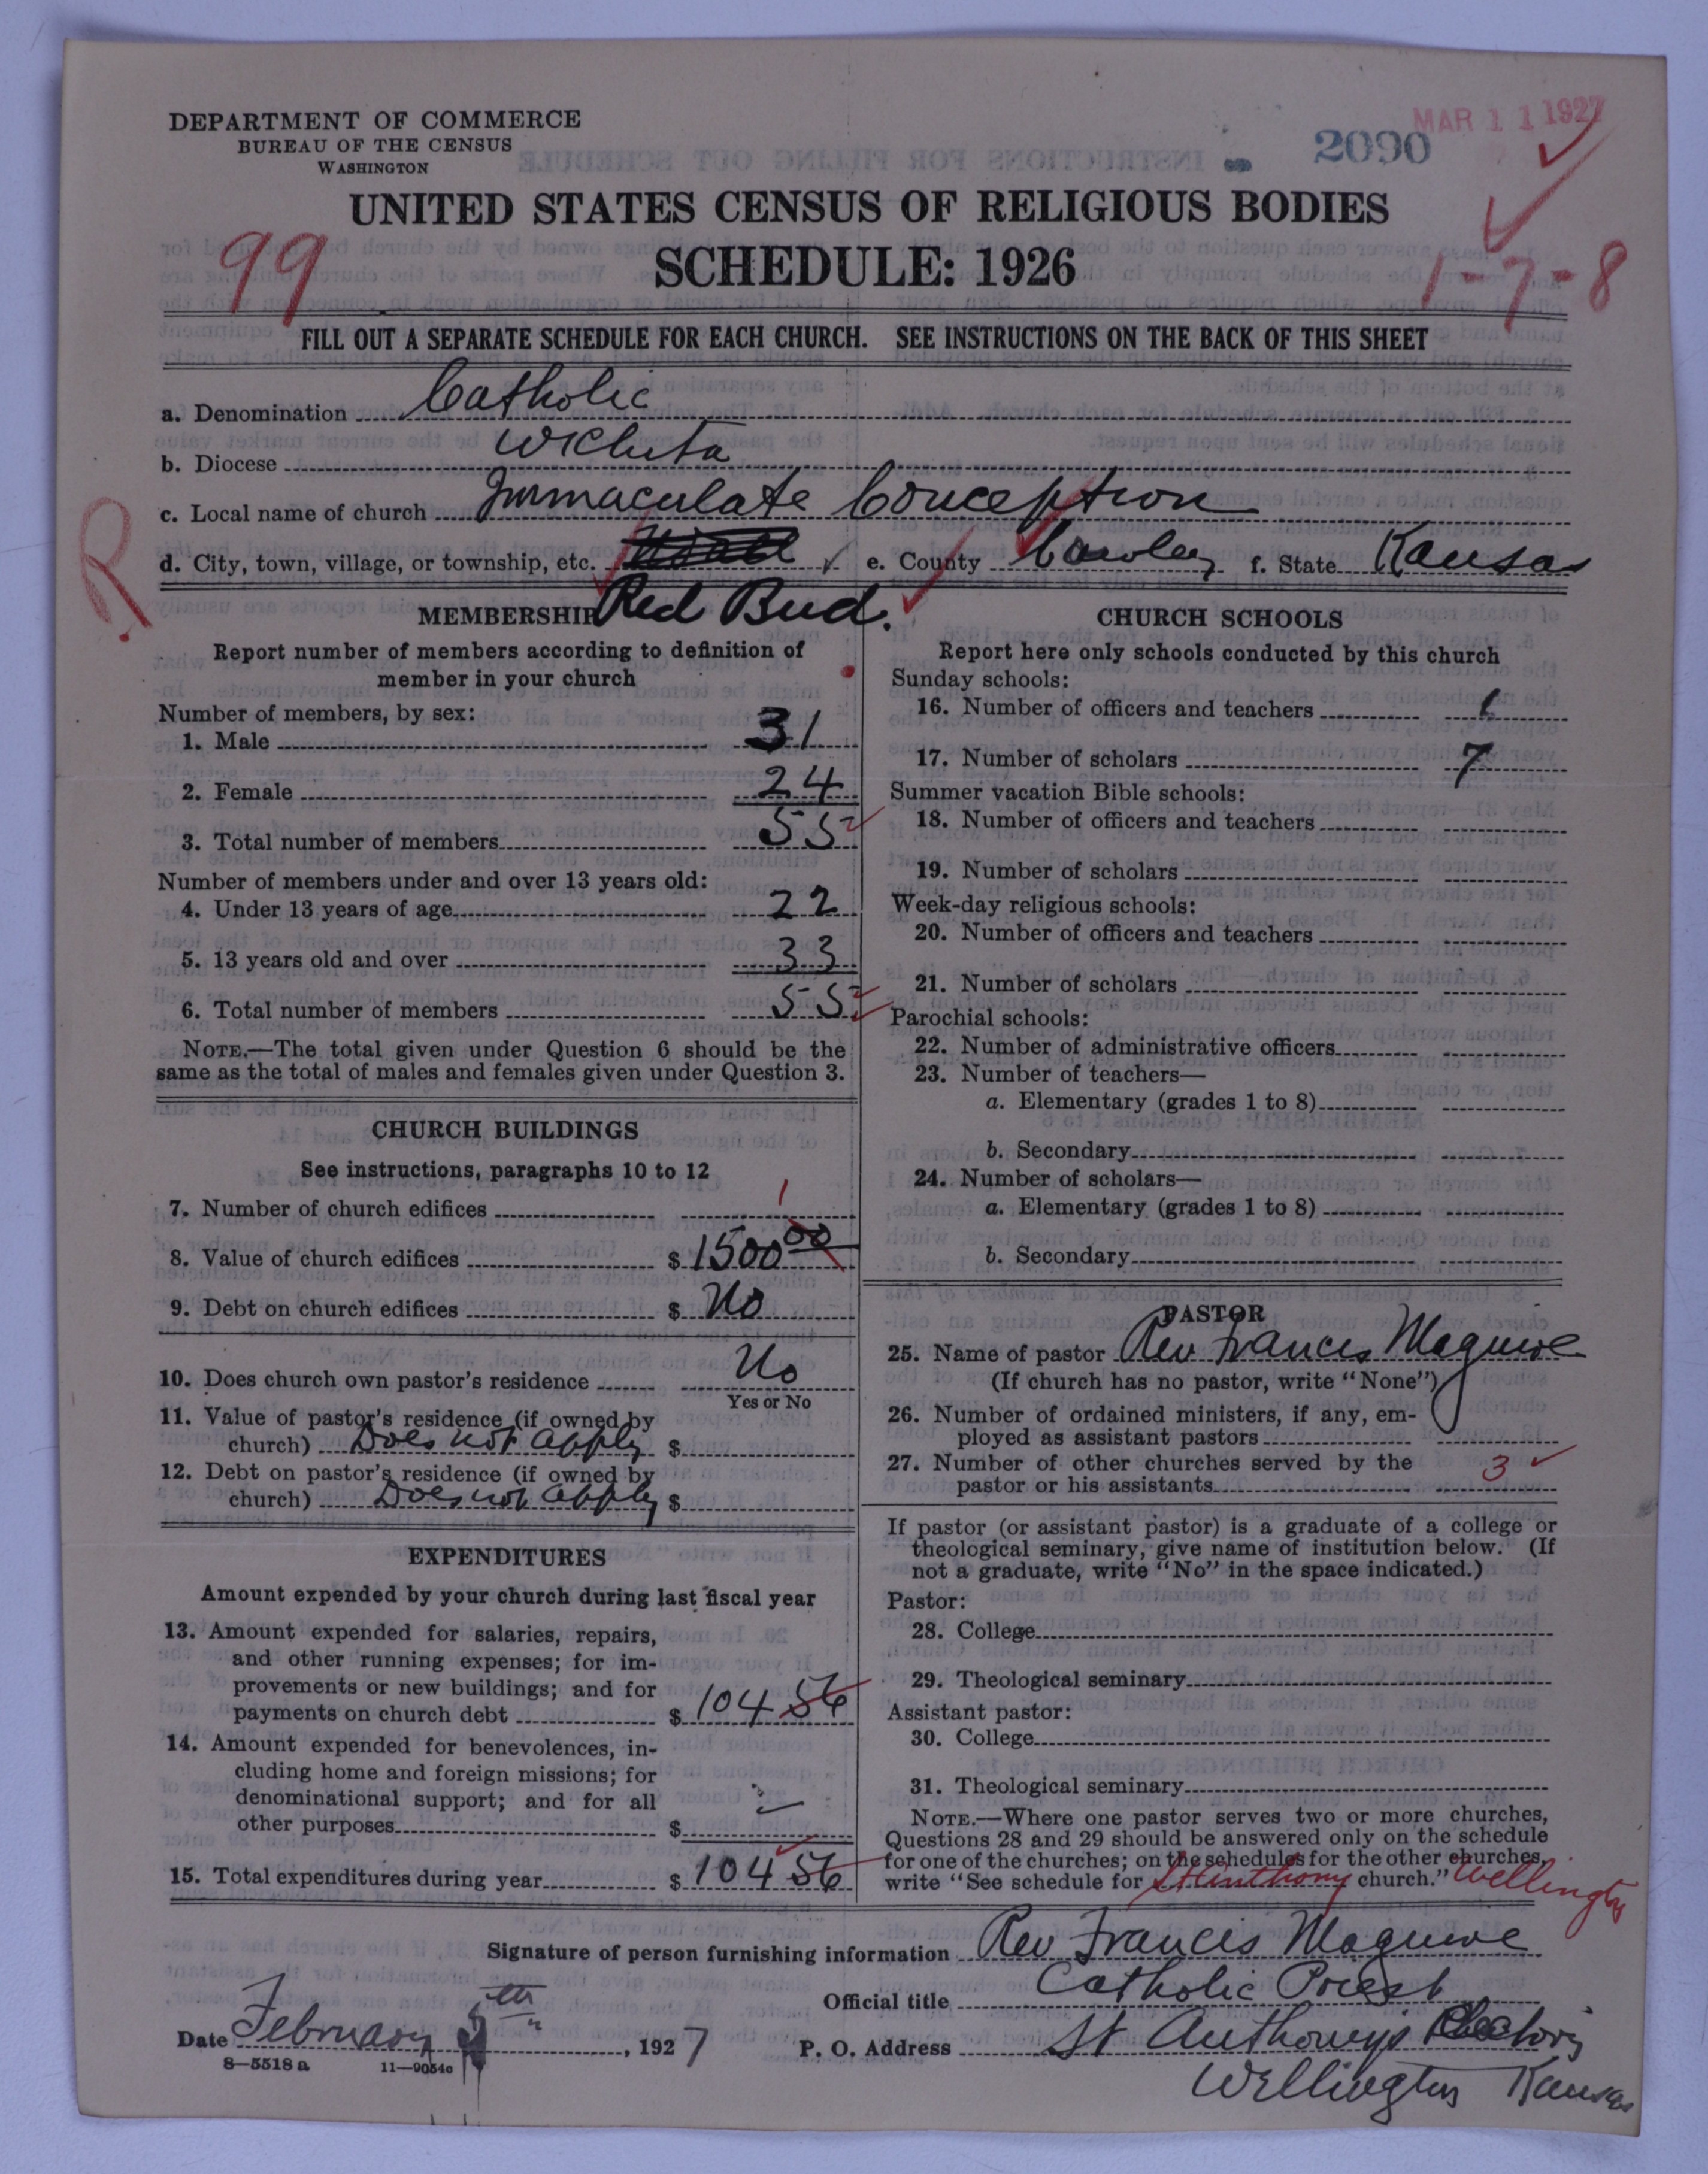 DEPARTMENT OF COMMERCE
BUREAU OF THE CENSUS
WASHINGTON
MAR 11 1927
2090
UNITED STATES CENSUS OF RELIGIOUS BODIES
SCHEDULE: 1926
99
1-7-8
FILL OUT A SEPARATE SCHEDULE FOR EACH CHURCH. SEE INSTRUCTIONS ON THE BACK OF THIS SHEET
a. Denomination Catholic
b. Diocese Wichita
c. Local name of church Immaculate Conception
R
d. City, town, village, or township, etc. e. County Cowley f. State Kansas
Red Bud.
MEMBERSHIP
Report number of members according to definition of
member in your church
Number of members, by sex:
1. Male 31
2. Female 24
3. Total number of members 55
Number of members under and over 13 years old:
4. Under 13 years of age 22
5. 13 years old and over 33
6. Total number of members 55
NOTE.—The total given under Question 6 should be the
same as the total of males and females given under Question 3.
CHURCH BUILDINGS
See instructions, paragraphs 10 to 12
7. Number of church edifices 1
8. Value of church edifices $ 1500 00
9. Debt on church edifices $ No
10. Does church own pastor's residence No
Yes or No
11. Value of pastor's residence (if owned by
church) Does not apply $
12. Debt on pastor's residence (if owned by
church) Does not apply $
EXPENDITURES
Amount expended by your church during last fiscal year
13. Amount expended for salaries, repairs,
and other running expenses; for im-
provements or new buildings; and for
payments on church debt $ 104 56
14. Amount expended for benevolences, in-
cluding home and foreign missions; for
denominational support; and for all
other purposes $
15. Total expenditures during year $ 104 56
CHURCH SCHOOLS
Report here only schools conducted by this church
Sunday schools:
16. Number of officers and teachers 1
17. Number of scholars 7
Summer vacation Bible schools:
18. Number of officers and teachers
19. Number of scholars
Week-day religious schools:
20. Number of officers and teachers
21. Number of scholars
Parochial schools:
22. Number of administrative officers
23. Number of teachers—
a. Elementary (grades 1 to 8)
b. Secondary
24. Number of scholars—
a. Elementary (grades 1 to 8)
b. Secondary
PASTOR
25. Name of pastor Rev Francis Maguire
(If church has no pastor, write "None")
26. Number of ordained ministers, if any, em-
ployed as assistant pastors
27. Number of other churches served by the
pastor or his assistants 3
If pastor (or assistant pastor) is a graduate of a college or
theological seminary, give name of institution below. (If
not a graduate, write "No" in the space indicated.)
Pastor:
28. College
29. Theological seminary
Assistant pastor:
30. College
31. Theological seminary
NOTE.—Where one pastor serves two or more churches,
Questions 28 and 29 should be answered only on the schedule
for one of the churches; on the schedules for the other churches,
write "See schedule for St Anthony church." Wellington
Signature of person furnishing information Rev Francis Maguire
Official title Catholic Priest
Date February th, 1927
P. O. Address St Anthonys Rectory
Wellington Kansas
8—5518 a 11—9054c